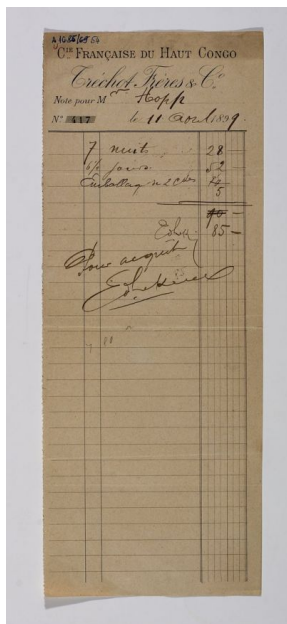 Cie Française du Haut Congo
Tréchot Frères & Co
Note pour M Hopp
No 417 le 11 Avril 1899
7 nuits 28 —
6½ jours 52 —
Emballage 5
85 —
Pour acquit